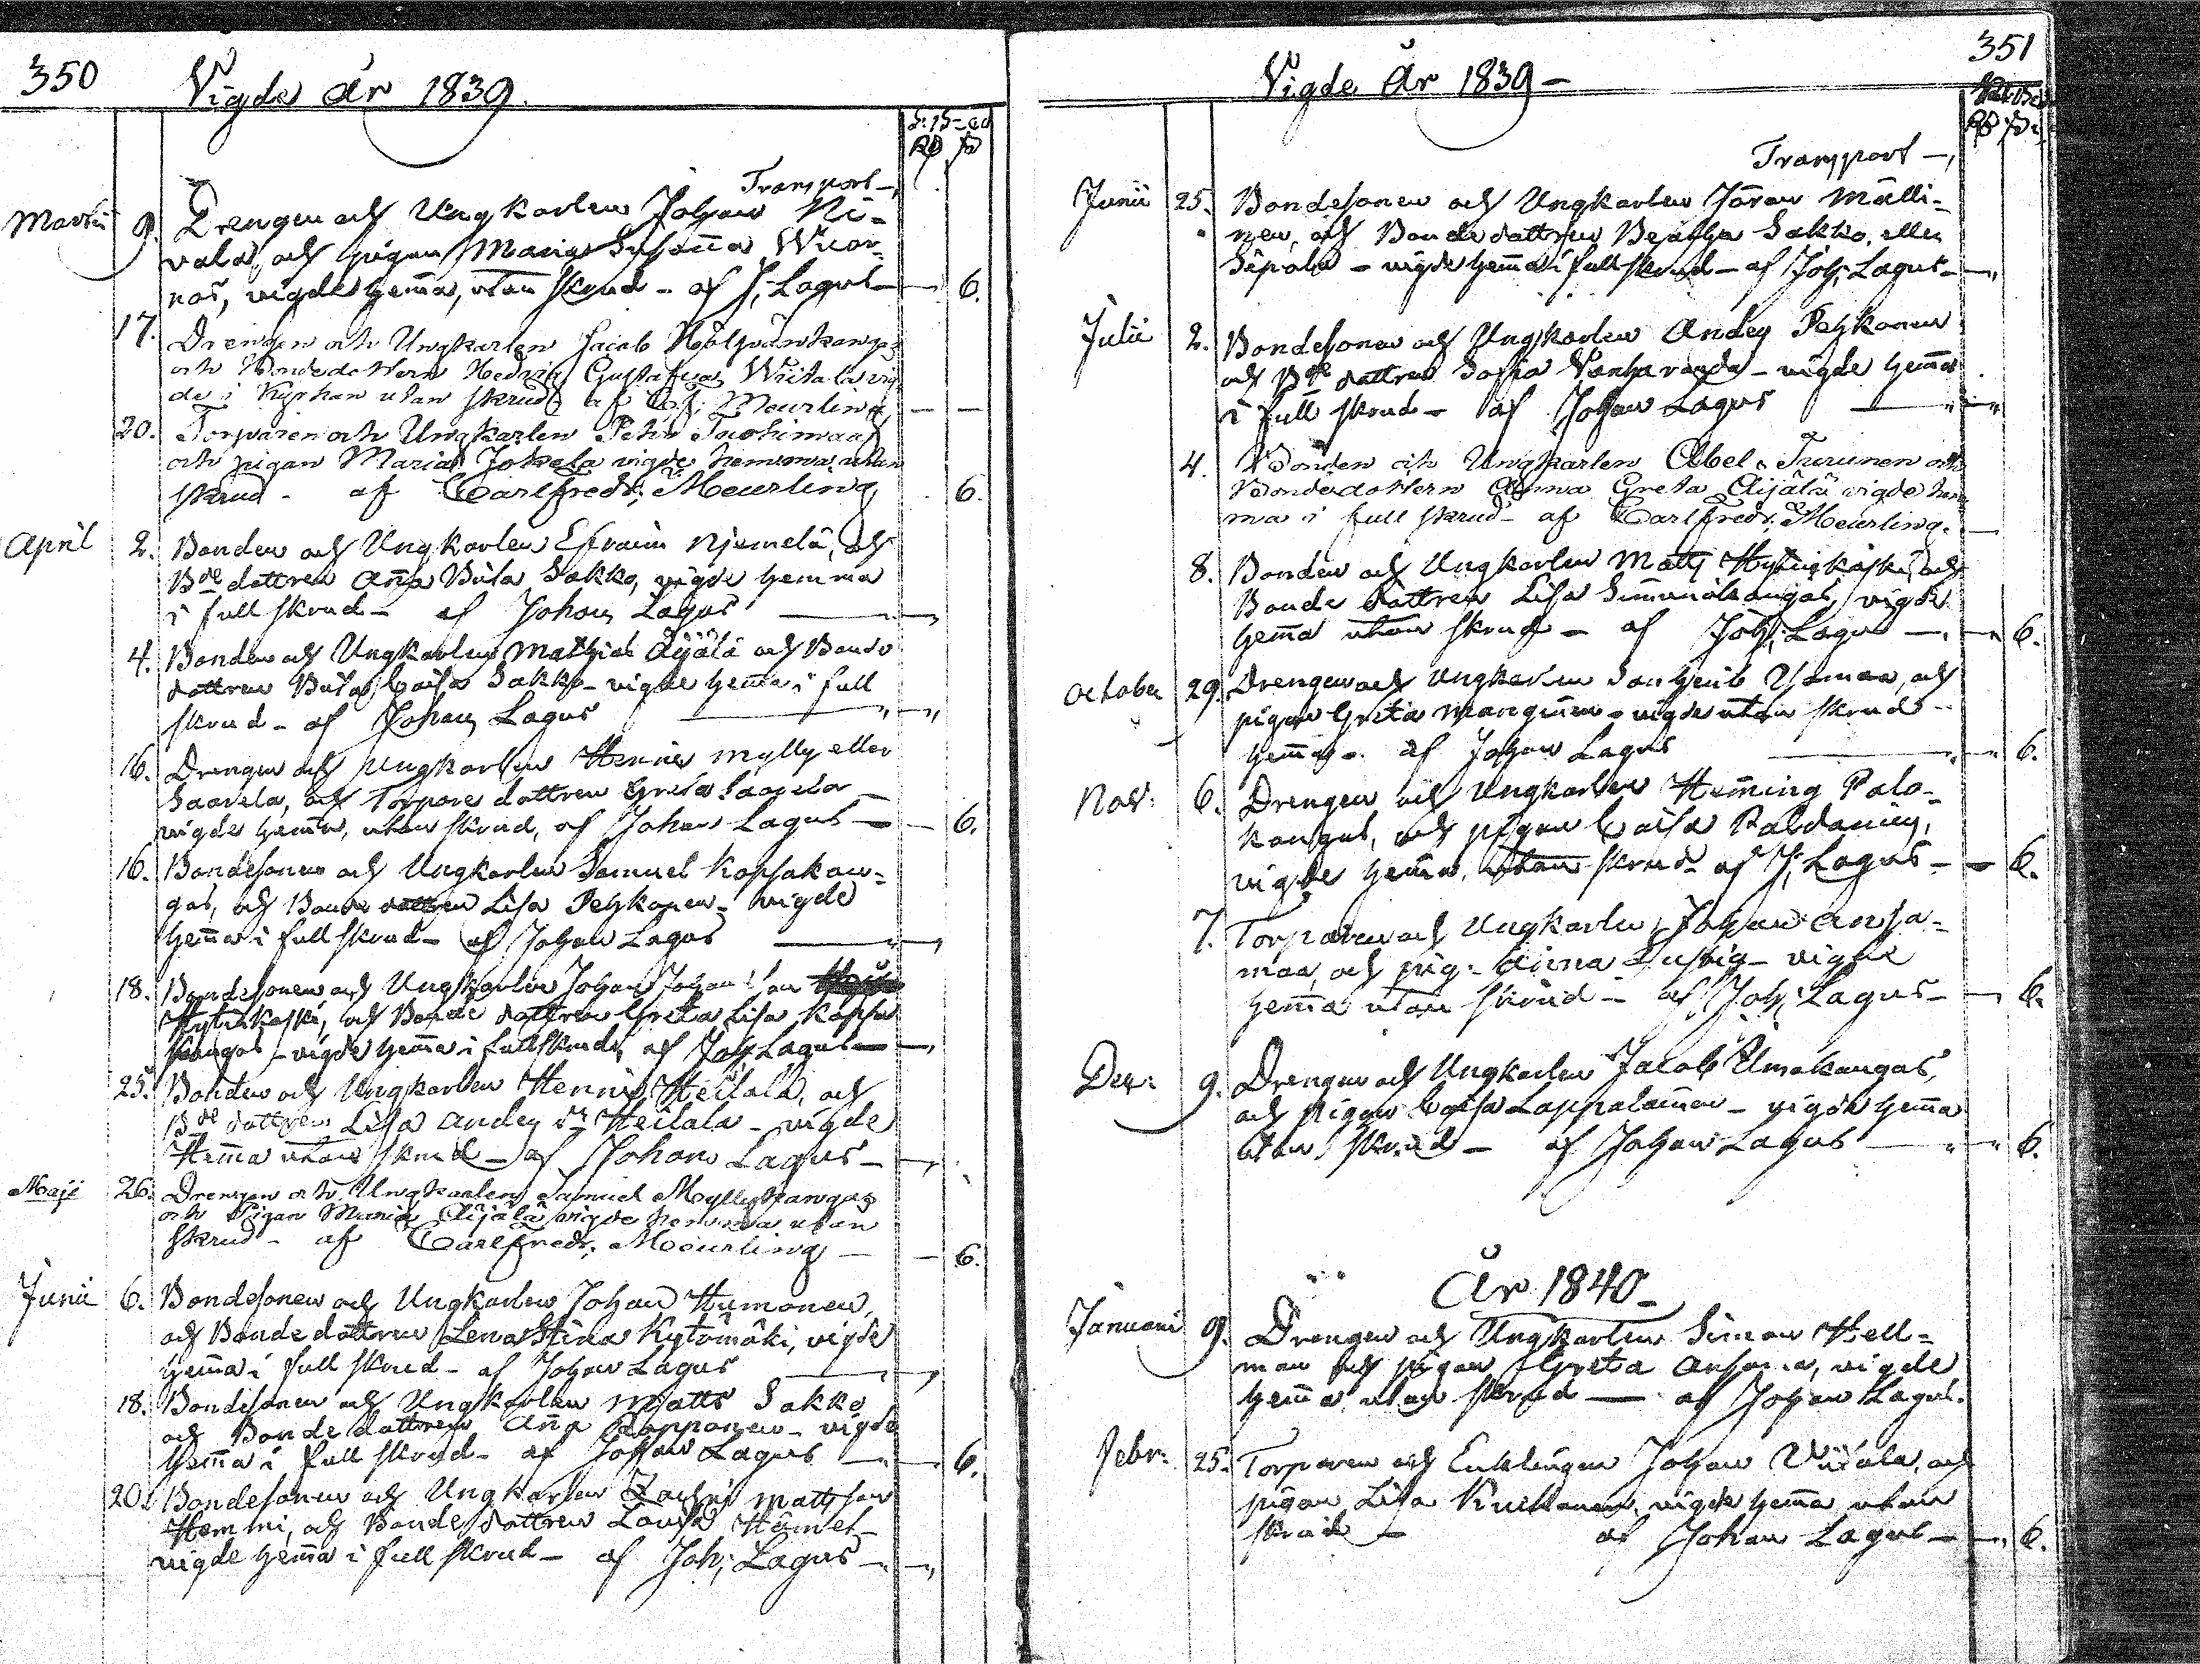 350
Vigde År 1839.
Transport —
Martii 9. Drengen och Ungkarlen Johan Ni-
vala, och pigan Maria Susanna Wuor-
nos, vigde hemma, utan skrud - af J. Lagus — 6.
17. Drengen och Ungkarlen Jacob
och Bondedottern Hedvig Gustafva Wiitala vig-
de i Kyrkan utan skrud af C. f. Meurling — —
20. Torparen och Ungkarlen Petter Tuohimaa
och pigan Maria Jokela vigde hemma utan
skrud - af Carl Fredr: Meurling 6.
April 2. Bonden och Ungkarlen Efraim Njemelä, och
Bde dottren Anna Brita Sakko, vigde hemma
i full skrud - af Johan Lagus —
4. Bonden och Ungkarlen Mathias Äijälä och Bonde
dottren Brita Caisa Sakko - vigde hemma i full
skrud - af Johan Lagus —
16. Drengen och Ungkarlen Henric Mylly eller
Saarela, och Torpare dottren Greta Saarela
vigde hemma, utan skrud, af Johan Lagus — 6.
16. Bondesonen och Ungkarlen Samuel Kopsakan-
gas, och Bonde dottren Lisa Pehkonen - vigde
hemma i full skrud - af Johan Lagus —
18. Bondesonen och Ungkarlen Johan Johansson
Hytinkoski, och Bonde dottren Greta Lisa Kopsa
kangas - vigde hemma i full skrud, af Joh Lagus —
25. Bonden och Ungkarlen Henric Heilala, och
Bde dottren Lisa Anders dr Heilala - vigde
Hemma utan skrud - af Johan Lagus —
Maji 26. Drengen och Ungkarlen Samuel Myllykangas
och Pigan Maria Äijälä vigde hemma utan
skrud - af Carl Fredr: Meurling — 6.
Junii 6. Bondesonen och Ungkarlen Johan Humonen,
och Bonde dottren Lena Stina Kytömäki, vigde
hemma i full skrud - af Johan Lagus —
18. Bondesonen och Ungkarlen Matts Sakko
och Bonde dottren Anna - vigde
hemma i full skrud - af Johan Lagus — 6.
20. Bondesonen och Ungkarlen Zachris Mattsson
Hemmi, och Bonde dottren Lovisa
vigde hemma i full skrud - af Joh; Lagus —
351
Vigde År 1839 —
Transport —
Junii 25. Bondesonen och Ungkarlen Jöran Mälli-
nen, och Bonde dottren Beatha Sakko, eller
Sepola - vigde hemma i full skrud - af Joh; Lagus —
Julii 2. Bondesonen och Ungkarlen Anders Pehkonen
och Bde dottren Sofia Vanharanda - vigde hemma
i full skrud - af Johan Lagus —
4. Bonden och Ungkarlen Abel Turunen och
Bondedottern Anna Greta Äijälä vigde hem
ma i full skrud - af Carl Fredr: Meurling. —
8. Bonden och Ungkarlen Matts Hytinkoski, och
Bonde dottren Lisa Simunakangas, vigde
hemma utan skrud - af Joh; Lagus — 6.
October 29. Drengen och Ungkarlen
pigan Greta Manguinen - vigde utan skrud -
hemma - af Johan Lagus — 6.
Nov: 6. Drengen och Ungkarlen Hemming Palo-
kangas, och pigan Caisa
vigde hemma, utan skrud af J; Lagus — 6.
7. Torparen och Ungkarlen Johan Ansa-
maa, och pig: Anna - vigde
hemma utan skrud - af Joh; Lagus — 6.
Dec: 9. Drengen och Ungkarlen Jacob Elmakangas,
och pigan Caisa Lappalainen - vigde hemma
utan skrud - af Johan Lagus — 6.
År 1840 —
Januari 9. Drengen och Ungkarlen Simon Hell-
man och pigan Greta vigde
hemma utan skrud — af Johan Lagus.
Febr: 25. Torparen och Enklingen Johan och
pigan Lisa vigde hemma utan
skrud - af Johan Lagus — 6.